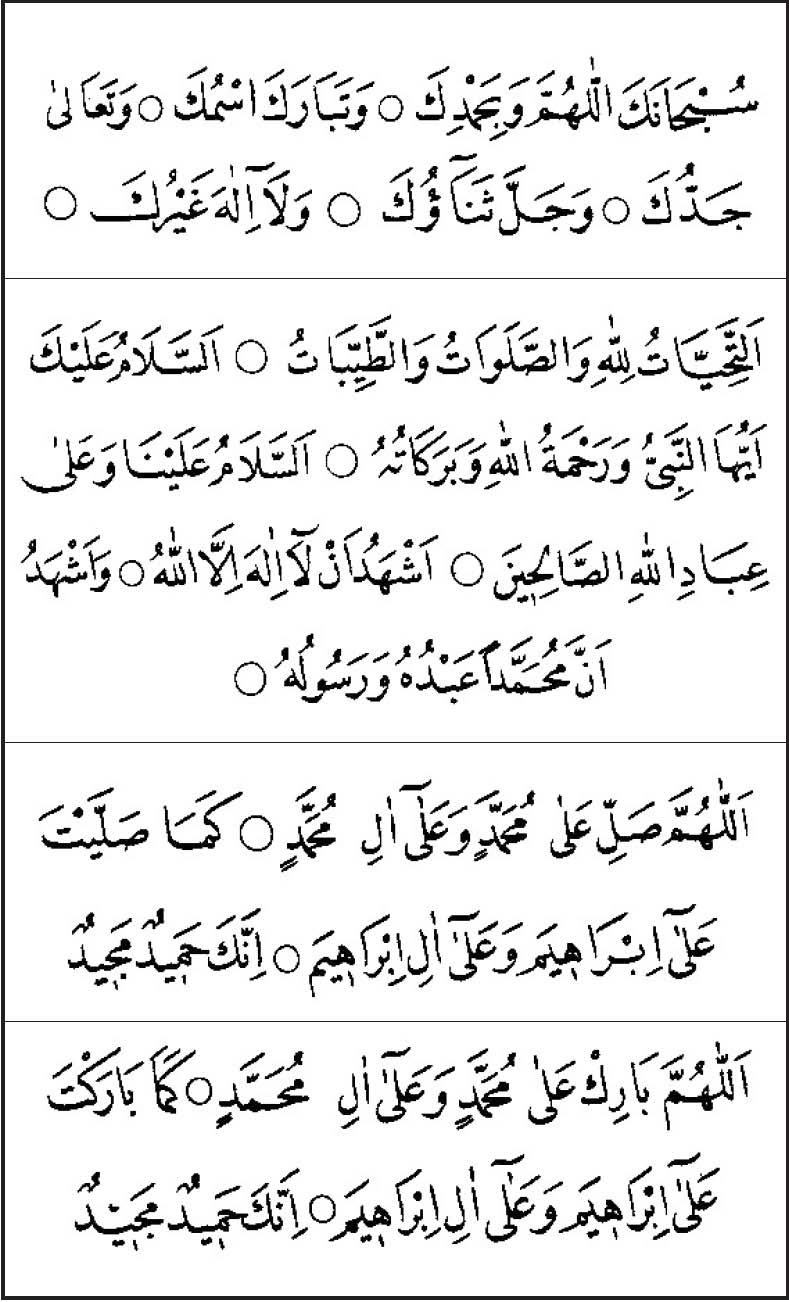 سُبْحَانَكَ اللّٰهُمَّ وَبِحَمْدِكَ ○ وَتَبَارَكَ اسْمُكَ ○ وَتَعَالٰى
جَدُّكَ ○ وَجَلَّ ثَنَآؤُكَ ○ وَلَآ اِلٰهَ غَيْرُكَ ○
اَلتَّحِيَّاتُ لِلّٰهِ وَالصَّلَوَاتُ وَالطَّيِّبَاتُ ○ اَلسَّلَامُ عَلَيْكَ
اَيُّهَا النَّبِىُّ وَرَحْمَةُ اللّٰهِ وَبَرَكَاتُهُ ○ اَلسَّلَامُ عَلَيْنَا وَعَلٰى
عِبَادِ اللّٰهِ الصَّالِحٖينَ ○ اَشْهَدُ اَنْ لَآ اِلٰهَ اِلَّا اللّٰهُ ○ وَاَشْهَدُ
اَنَّ مُحَمَّدًا عَبْدُهُ وَرَسُولُهُ ○
اَللّٰهُمَّ صَلِّ عَلٰى مُحَمَّدٍ وَعَلٰٓى اٰلِ مُحَمَّدٍ ○ كَمَا صَلَّيْتَ
عَلٰٓى اِبْرَاهٖيمَ وَعَلٰٓى اٰلِ اِبْرَاهٖيمَ ○ اِنَّكَ حَمٖيدٌ مَجٖيدٌ
اَللّٰهُمَّ بَارِكْ عَلٰى مُحَمَّدٍ وَعَلٰٓى اٰلِ مُحَمَّدٍ ○ كَمَا بَارَكْتَ
عَلٰٓى اِبْرَاهٖيمَ وَعَلٰٓى اٰلِ اِبْرَاهٖيمَ ○ اِنَّكَ حَمٖيدٌ مَجٖيدٌ